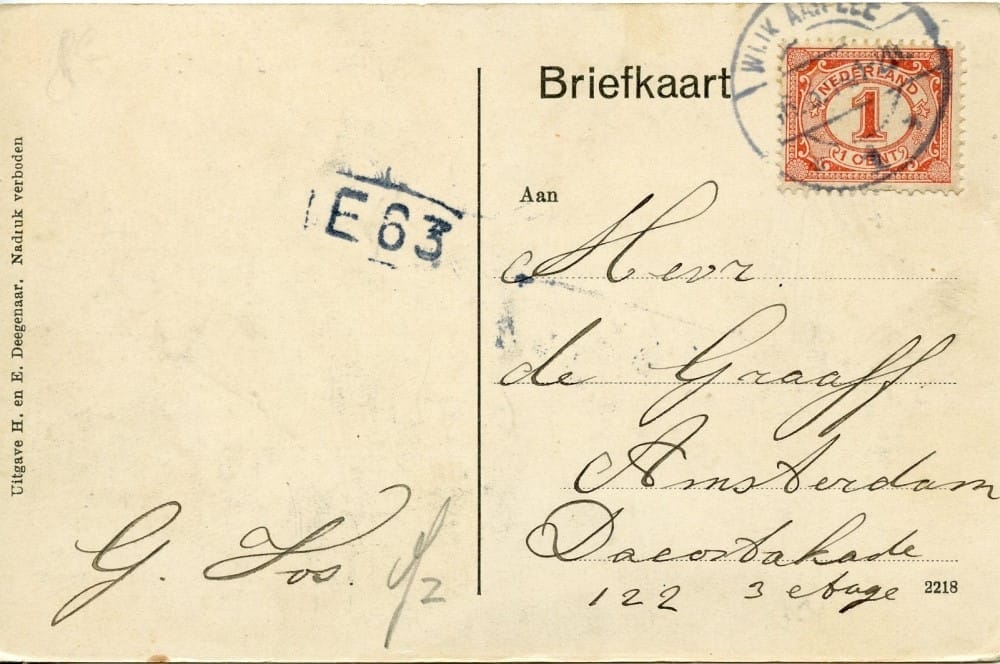 Uitgave H. en E. Deegenaar. Nadruk verboden
E 63
G. Vos.
Briefkaart
WIJK AAN ZEE
NEDERLAND
1
1 CENT
Aan
Hevr.
de Graaff
Amsterdam
Dacostakade
122 3 etage
2218